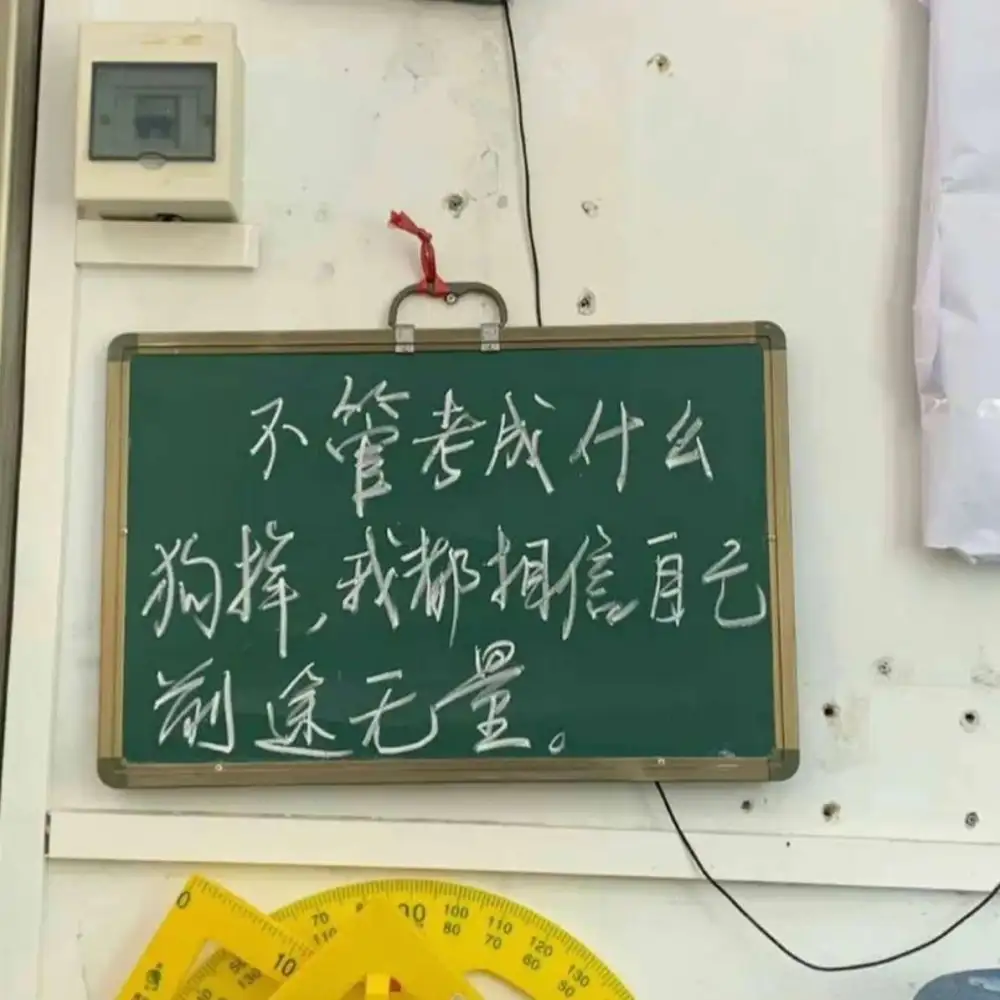 不管考成什么
狗样,我都相信自己
前途无量。
0
10
70
110
90
100
80
110
70
120
60
130
50